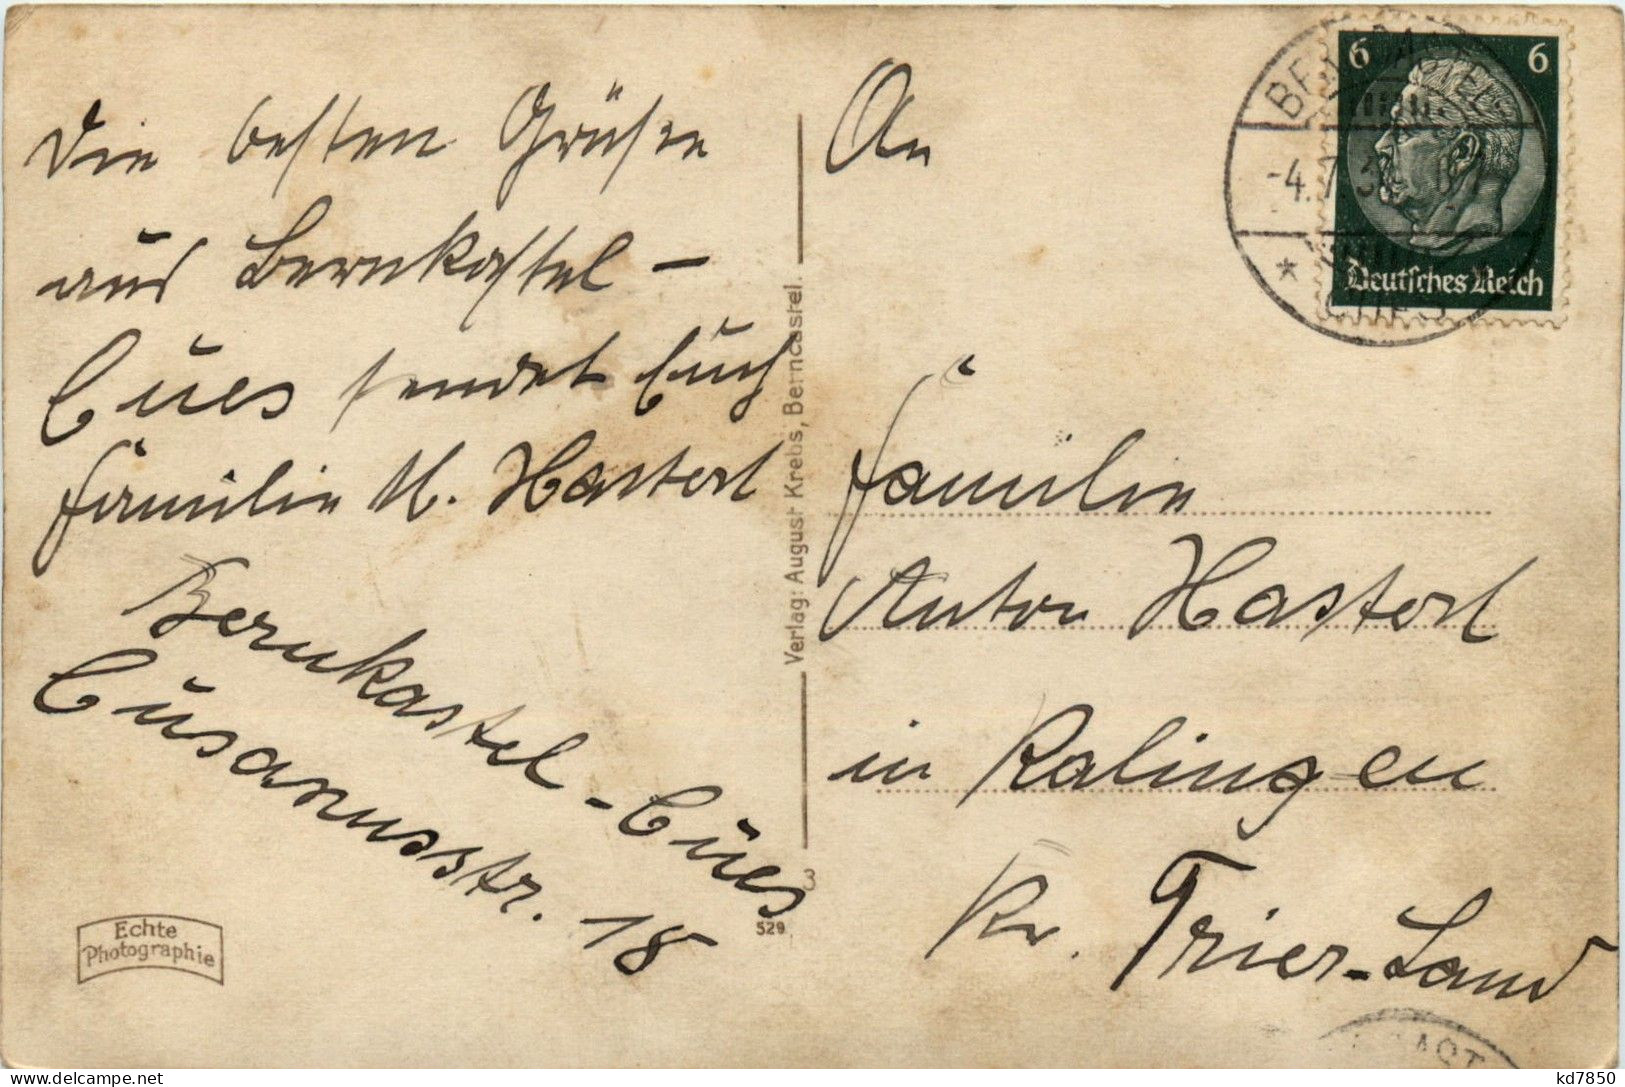 Die besten Grüße
aus Bernkastel -
Cues sendet Euch
Familie M. Hastert
Bernkastel - Cues
Cusanusstr. 18
Echte
Photographie
Verlag: August Krebs, Berncastel.
3
529
An
Familie
Anton Hastert
in Ralingen
Kr. Trier-Land
6 6
Deutsches Reich
BERNCASTEL
-4.7.3
CUES
kd7850